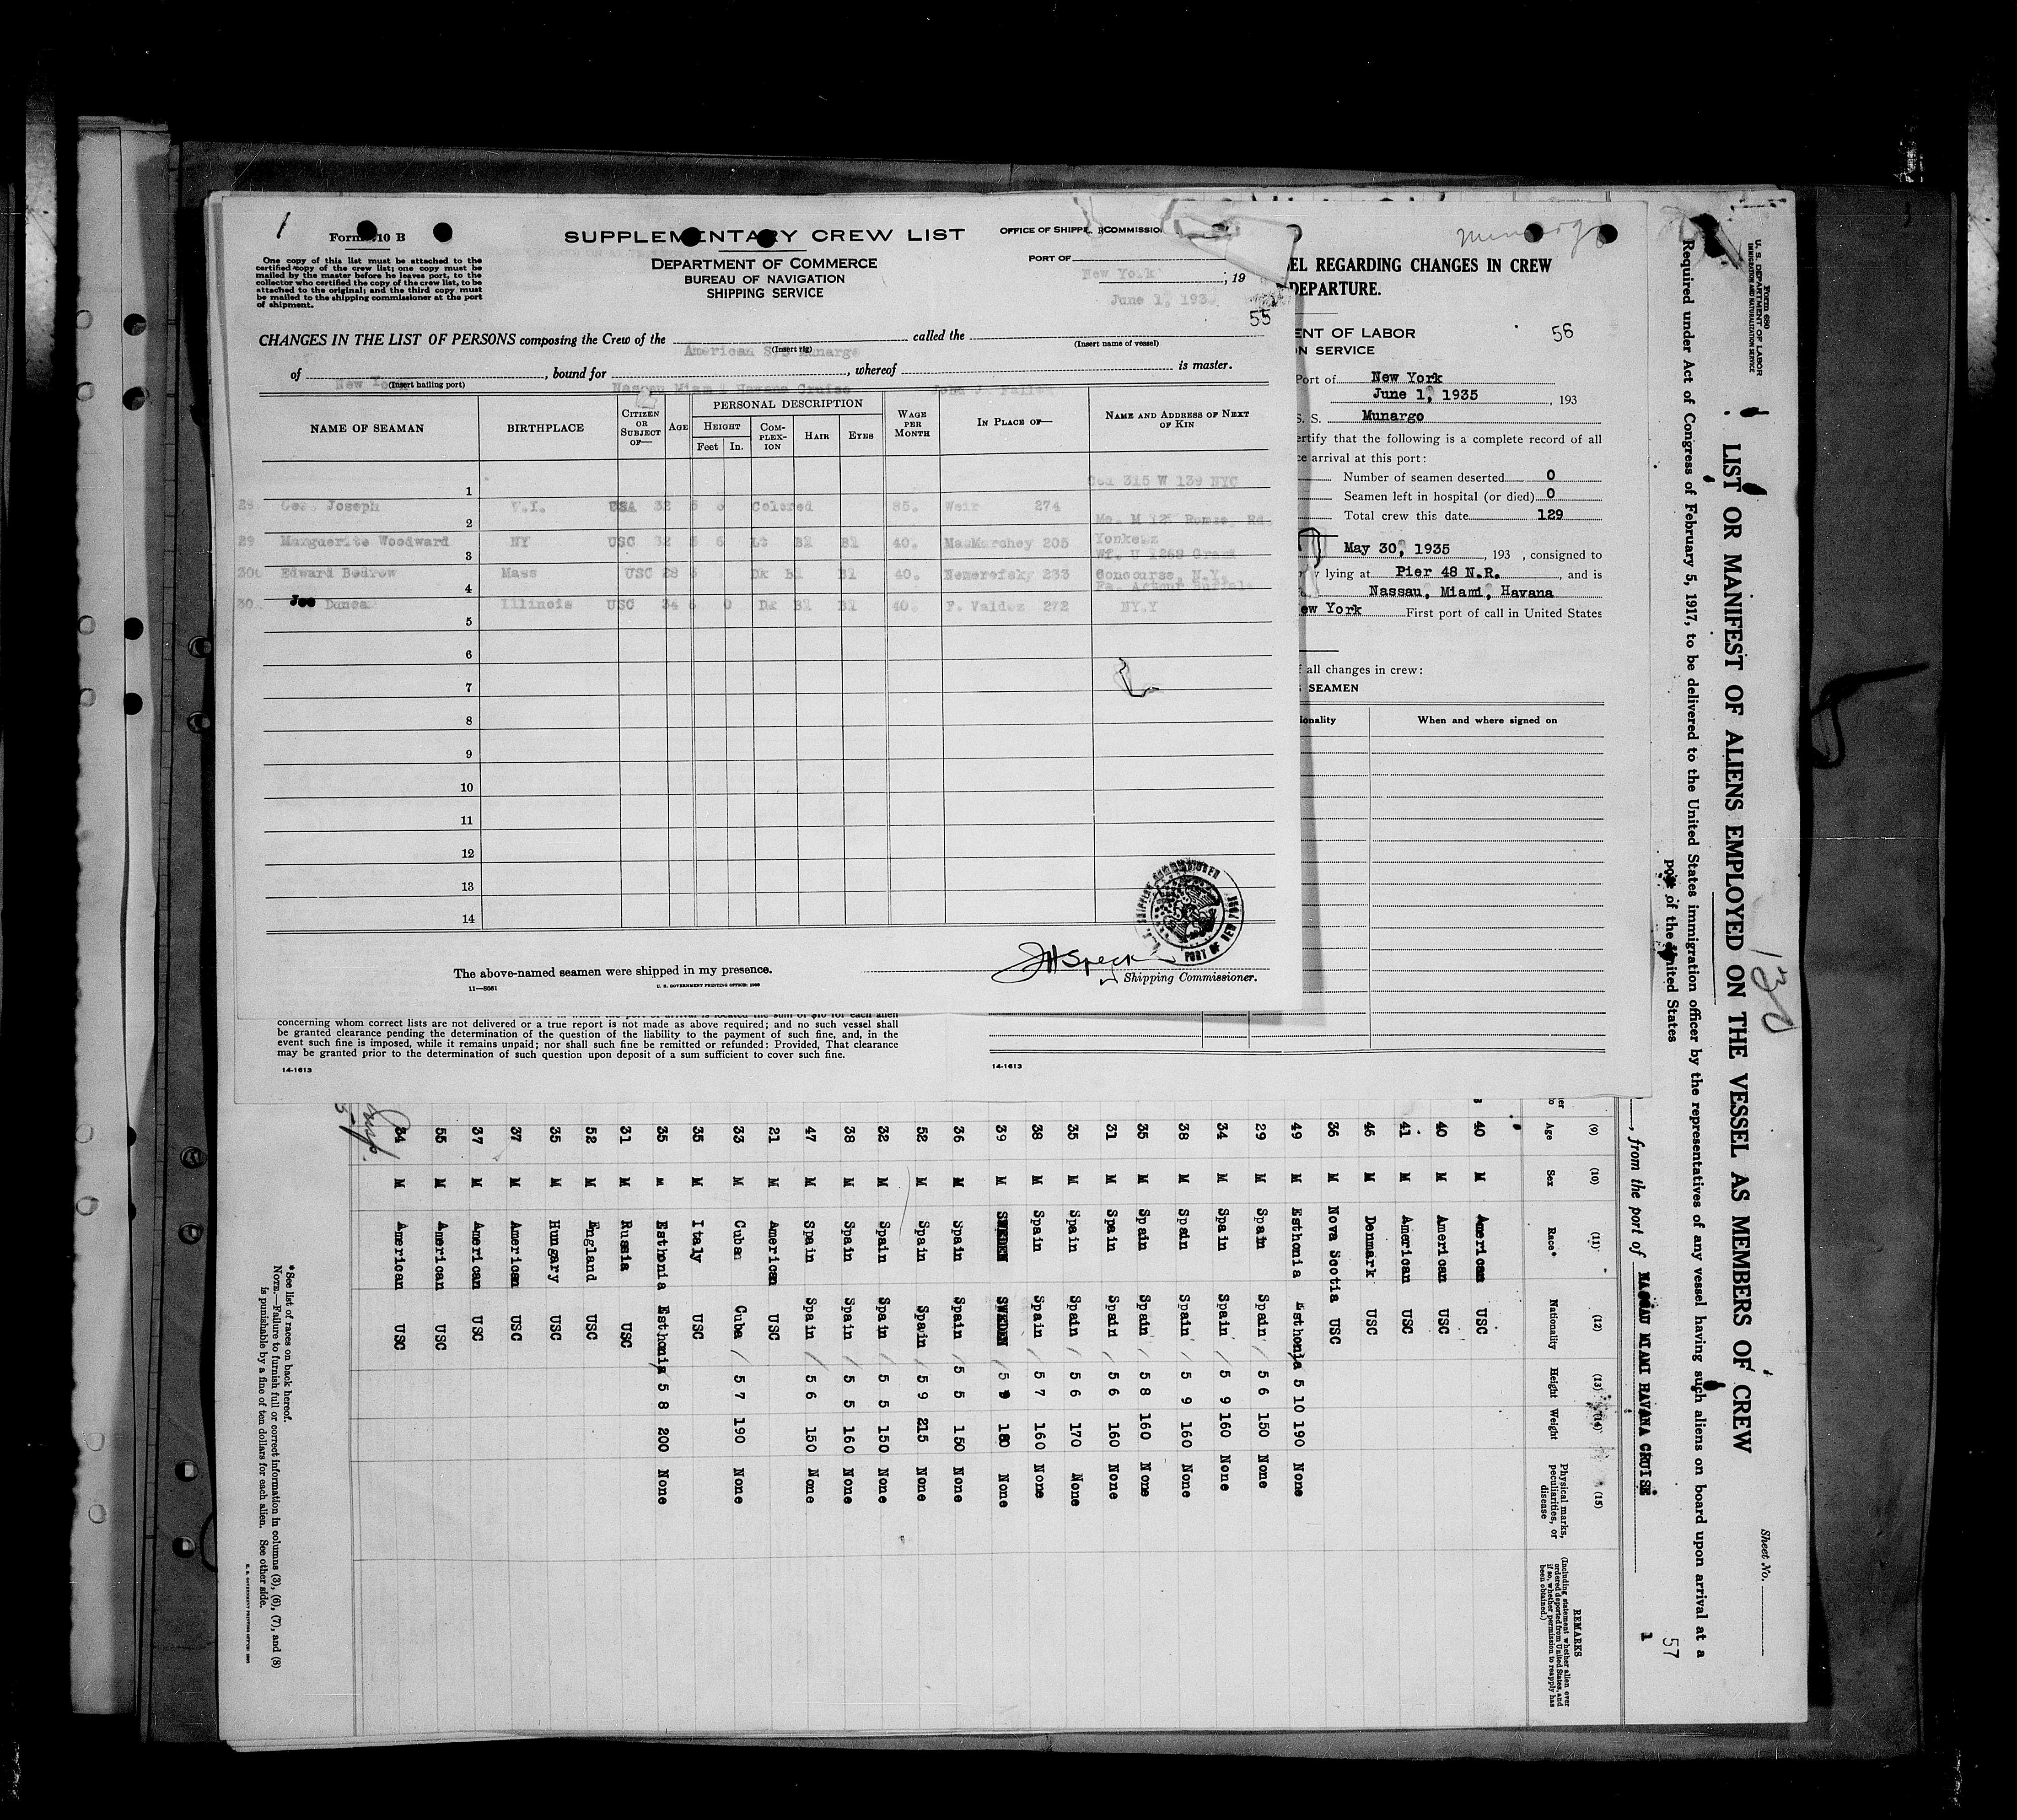 1
Form 710 B
One copy of this list must be attached to the
certified copy of the crew list; one copy must be
mailed by the master before he leaves port, to the
collector who certified the copy of the crew list, to be
attached to the original; and the third copy must
be mailed to the shipping commissioner at the port
of shipment.
SUPPLEMENTARY CREW LIST
DEPARTMENT OF COMMERCE
BUREAU OF NAVIGATION
SHIPPING SERVICE
OFFICE OF SHIPP. COMMISSIO
PORT OF
New York
; 19
June 1, 193
55
CHANGES IN THE LIST OF PERSONS composing the Crew of the called the
(Insert rig) (Insert name of vessel)
American S/S Munargo
of , bound for , whereof is master.
New York (Insert hailing port) Nassau Miami Havana Cruise John J. Fallon
NAME OF SEAMAN BIRTHPLACE CITIZEN OR SUBJECT OF— AGE PERSONAL DESCRIPTION HEIGHT Feet In. COMPLEXION HAIR EYES WAGE PER MONTH IN PLACE OF— NAME AND ADDRESS OF NEXT OF KIN
1
315 W 139 NYC
Geo. Joseph V.I. USA 32 5 Colored 85. Weir 274
2
29 Marguerite Woodward NY USC 32 5 6 Lt Bl Bl 40. MacMurchey 205 Yonkers
3
Edward Bedrow Mass USC 28 Dk Bl Bl 40. Nemerofsky 233 Concourse, N.Y.
4
Joe Duncan Illinois USC 34 6 0 Dk Bl Bl 40. F. Valdez 272 NY.Y
5
6
7
8
9
10
11
12
13
14
The above-named seamen were shipped in my presence.
11—8661
U. S. GOVERNMENT PRINTING OFFICE: 1930
JHSpeck
Shipping Commissioner.
U.S. SHIPPING COMMISSIONER PORT OF NEW YORK
Munargo
EL REGARDING CHANGES IN CREW
DEPARTURE.
ENT OF LABOR
56
N SERVICE
Port of New York
June 1, 1935 , 193
S. S. Munargo
ertify that the following is a complete record of all
ce arrival at this port:
Number of seamen deserted 0
Seamen left in hospital (or died) 0
Total crew this date 129
May 30, 1935 , 193 , consigned to
y lying at Pier 48 N.R. , and is
Nassau, Miami, Havana
ew York First port of call in United States
all changes in crew:
SEAMEN
ionality When and where signed on
concerning whom correct lists are not delivered or a true report is not made as above required; and no such vessel shall
be granted clearance pending the determination of the question of the liability to the payment of such fine, and, in the
event such fine is imposed, while it remains unpaid; nor shall such fine be remitted or refunded: Provided, That clearance
may be granted prior to the determination of such question upon deposit of a sum sufficient to cover such fine.
14-1613
14-1613
Form 680
U. S. DEPARTMENT OF LABOR
IMMIGRATION AND NATURALIZATION SERVICE
LIST OR MANIFEST OF ALIENS EMPLOYED ON THE VESSEL AS MEMBERS OF CREW
130
Sheet No.
Required under Act of Congress of February 5, 1917, to be delivered to the United States immigration officer by the representatives of any vessel having such aliens on board upon arrival at a
port of the United States
57
, from the port of NASSAU MIAMI HAVANA CRUISE
1
(9) (10) (11) (12) (13) (14) (15)
Age Sex Race* Nationality Height Weight Physical marks, peculiarities, or disease
REMARKS
(Including statement whether alien ever
ordered deported from United States, and
if so, whether permission to reapply has
been obtained.)
40 M American USC
40 M American USC
41 M American USC
46 M Denmark USC
36 M Nova Scotia USC
49 M Esthonia Esthonia 5 10 190 None
29 M Spain Spain 5 6 150 None
34 M Spain Spain 5 9 160 None
38 M Spain Spain 5 9 160 None
35 M Spain Spain 5 8 160 None
31 M Spain Spain 5 6 160 None
35 M Spain Spain 5 6 170 None
38 M Spain Spain 5 7 160 None
39 M SWEDEN SWEDEN 5 9 180 None
36 M Spain Spain 5 5 150 None
52 M Spain Spain 5 9 215 None
32 M Spain Spain 5 5 150 None
38 M Spain Spain 5 5 160 None
47 M Spain Spain 5 6 150 None
21 M American USC
33 M Cuban Cuba 5 7 190 None
35 M Italy USC
35 M Esthonia Esthonia 5 8 200 None
31 M Russia USC
52 M England USC
35 M Hungary USC
37 M American USC
37 M American USC
55 M American USC
34 M American USC
*See list of races on back hereof.
NOTE.—Failure to furnish full or correct information in columns (3), (6), (7), and (8)
is punishable by a fine of ten dollars for each alien. See other side.